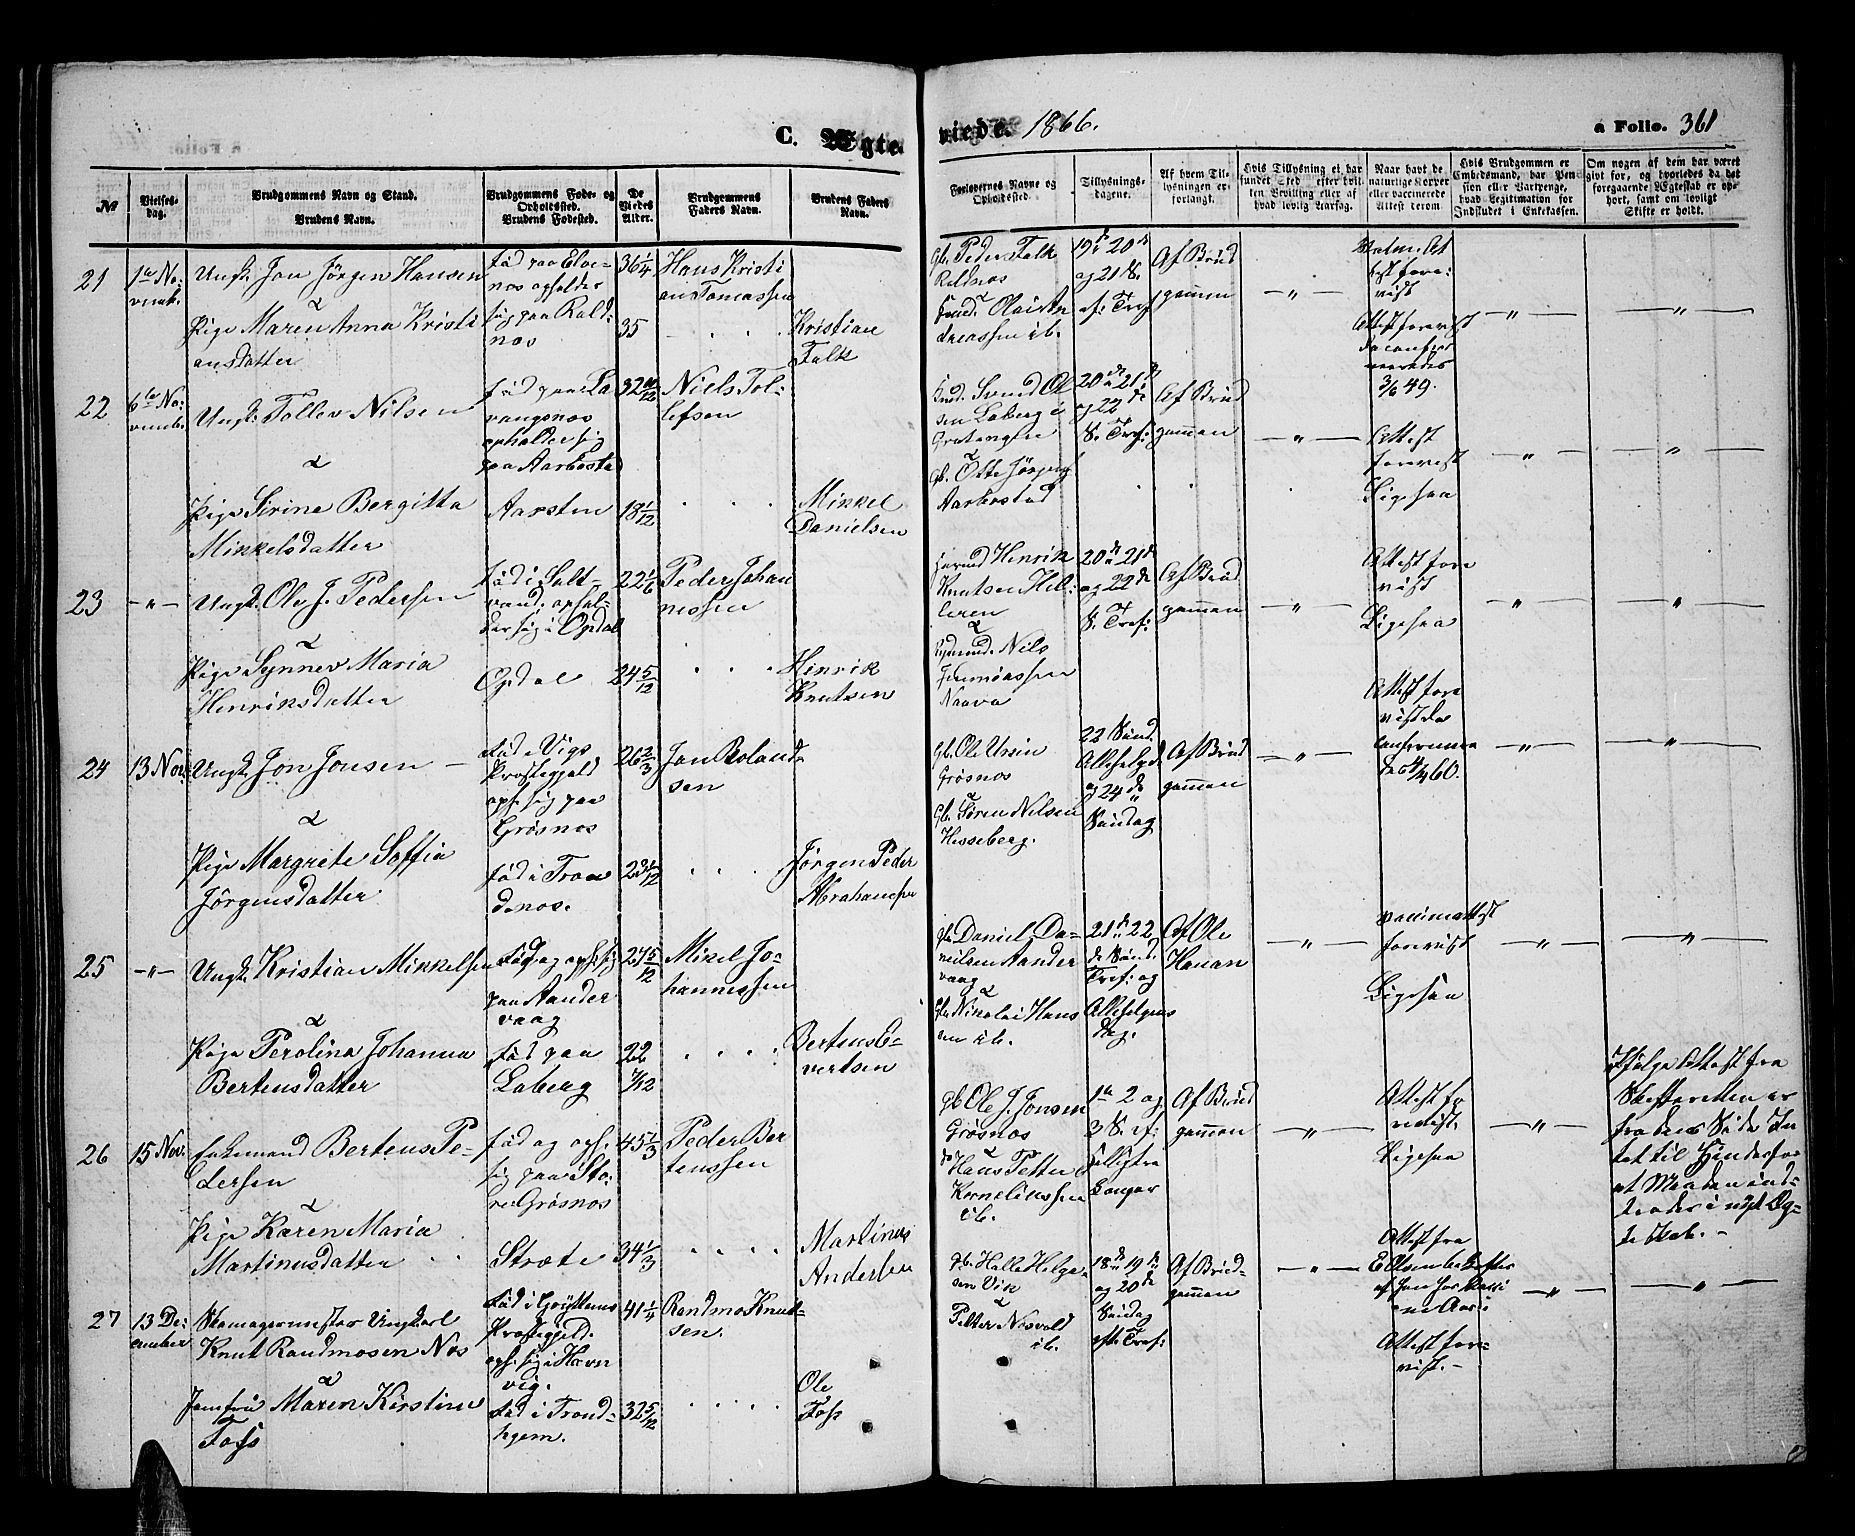 C. Ægte
viede. 1866.
a Folio. 361
№
Vielses-
dag.
Brudgommens Navn og Stand.
Brudens Navn.
Brudgommens Føde- og
Opholdssted.
Brudens Fødested.
De
Viedes
Alder.
Brudgommens
Faders Navn.
Brudens Faders
Navn.
Forlovernes Navne og
Opholdssted.
Tillysnings-
dagene.
Af hvem Til-
lysningen er
forlangt.
Hvis Tillysning ei har
fundet Sted, efter hvil-
ken Bevilling eller af
hvad lovlig Aarsag.
Naar havt de
naturlige Kopper
eller vaccinerede
Attest derom.
Hvis Brudgommen er
Embedsmand, har Pen-
sion eller Vartpenge,
hvad Legitimation for
Indskudet i Enkekassen.
Om nogen af dem har været
gift før, og hvorledes da det
foregaaende Ægteskab er op-
hørt, samt om lovligt
Skifte er holdt.
21
1te No-
vembr.
Ungk. Jon Jørgen Hansen
&
Pige Maren Anna Kristi
ansdatter
Fød paa Elve-
nes opholder
sig paa Rold-
nes
36 1/4
35
Hans Kristi
an Tomassen
Kristian
Falk
Gb. Peder Falk
Roldnes
&
Olai An
dreassen ib.
19de 20de
og 21 S.
ef: Tref
Af Brud
gommen
Attest forevist
3/6 49.
22
6te No-
vembr.
Ungk. Tollev Nilsen
&
Pige Sirina Bergitta
Mikkelsdatter
Fød paa La
vangsnes
opholder sig
paa Aarbostad
Aarsten
32 10/12
18 1/12
Niels Tol-
lefsen
Mikkel
Danielsen
Svend Ol
sen Laberg i
Gratangen
&
Gb. Otte Jørgens
Aarbostad
20de 21de
og 22de
S. Tref:
Af Brud
gommen
Attest
forevist
Ligesaa
23
Ungk. Ole J. Pedersen
&
Pige Synnev Maria
Henriksdatter
Fød i Salt-
vand, ophol-
der sig i Opdal
Opdal
22 1/6
24 5/12
Peder Johan
nessen
Henrik
Knutsen
Henrik
Knutsen Hel-
leren
&
Nils
20de 21de
og 22de
S. Tref:
Af Brud
gommen
Attest fore
vist
Ligesaa
24
13 Nov.
Ungk. Jon Jonsen
&
Pige Margrete Soffia
Jørgensdatter
Fød i Vigs
Præstegjeld
oph. sig paa
Grøsnes
Fød i Tron
denes.
26 2/3
23 1/12
Jon Roland-
sen
Jørgen Peder
Abrahamsen
Gb. Ole Ursin
Grøsnes
&
Gb. Søren Nilsen
Hesseberg.
22 Sønd.
Allehelgd
og 24de
Søndag
Af Brud
gommen
Attest fore
vist da
25
Ungk. Kristian Mikkelsen
&
Pige Perolina Johanna
Bertensdatter
Fød og oph. sig
paa Aander
vaag
Fød paa
Laberg
27 5/12
22
7/12
Mikel Jo-
hannessen
Bertens E-
vertsen
Daniel Da-
nielsen Aander
vaag
&
Nikolai Hans
sen ib.
21de 22
de Sønd.
Tref: og
Allehelgens
dag.
Af Ole
Hanan
forevist
Ligesaa
26
15 Nov.
Enkemand Bertens Pe-
dersen
&
Pige Karen Maria
Martinusdatter
Fød og oph.
sig paa Sto-
re Grøsnes
Stræte
45 1/3
34 1/3
Peder Ber
tenssen
Martinus
Andersen
Gb. Ole J. Jonsen
Grøsnes
&
Hans Petter
Korneliussen
ib.
1te 2 og
3 S. ef:
Af Brud
gommen
Attest fo
revist.
Ligesaa
Ifølge Attest fra
Skifteretten er
fra dens Side In
tet til Hinder for
at Manden ind-
træder i nyt Æg-
teskab. -
27
13 De-
cember
Skomagermester Ungkarl
Knut Randmosen Nos
&
Jomfru Maren Kirstine
Foss
Fød i Gryttens
Præstegjeld.
oph. sig i Havn
vig.
Fød i Trond-
hjem.
41 1/4
32 5/12
Randmo Knut-
sen.
Ole
Foss
Gb. Halle Helge-
sen Vik
&
Petter Norvald
ib.
18de 19de
og 20de
Søndag
eft. Tref:
Af Brud-
gommen
Attest fra
Attest fore-
vist. -